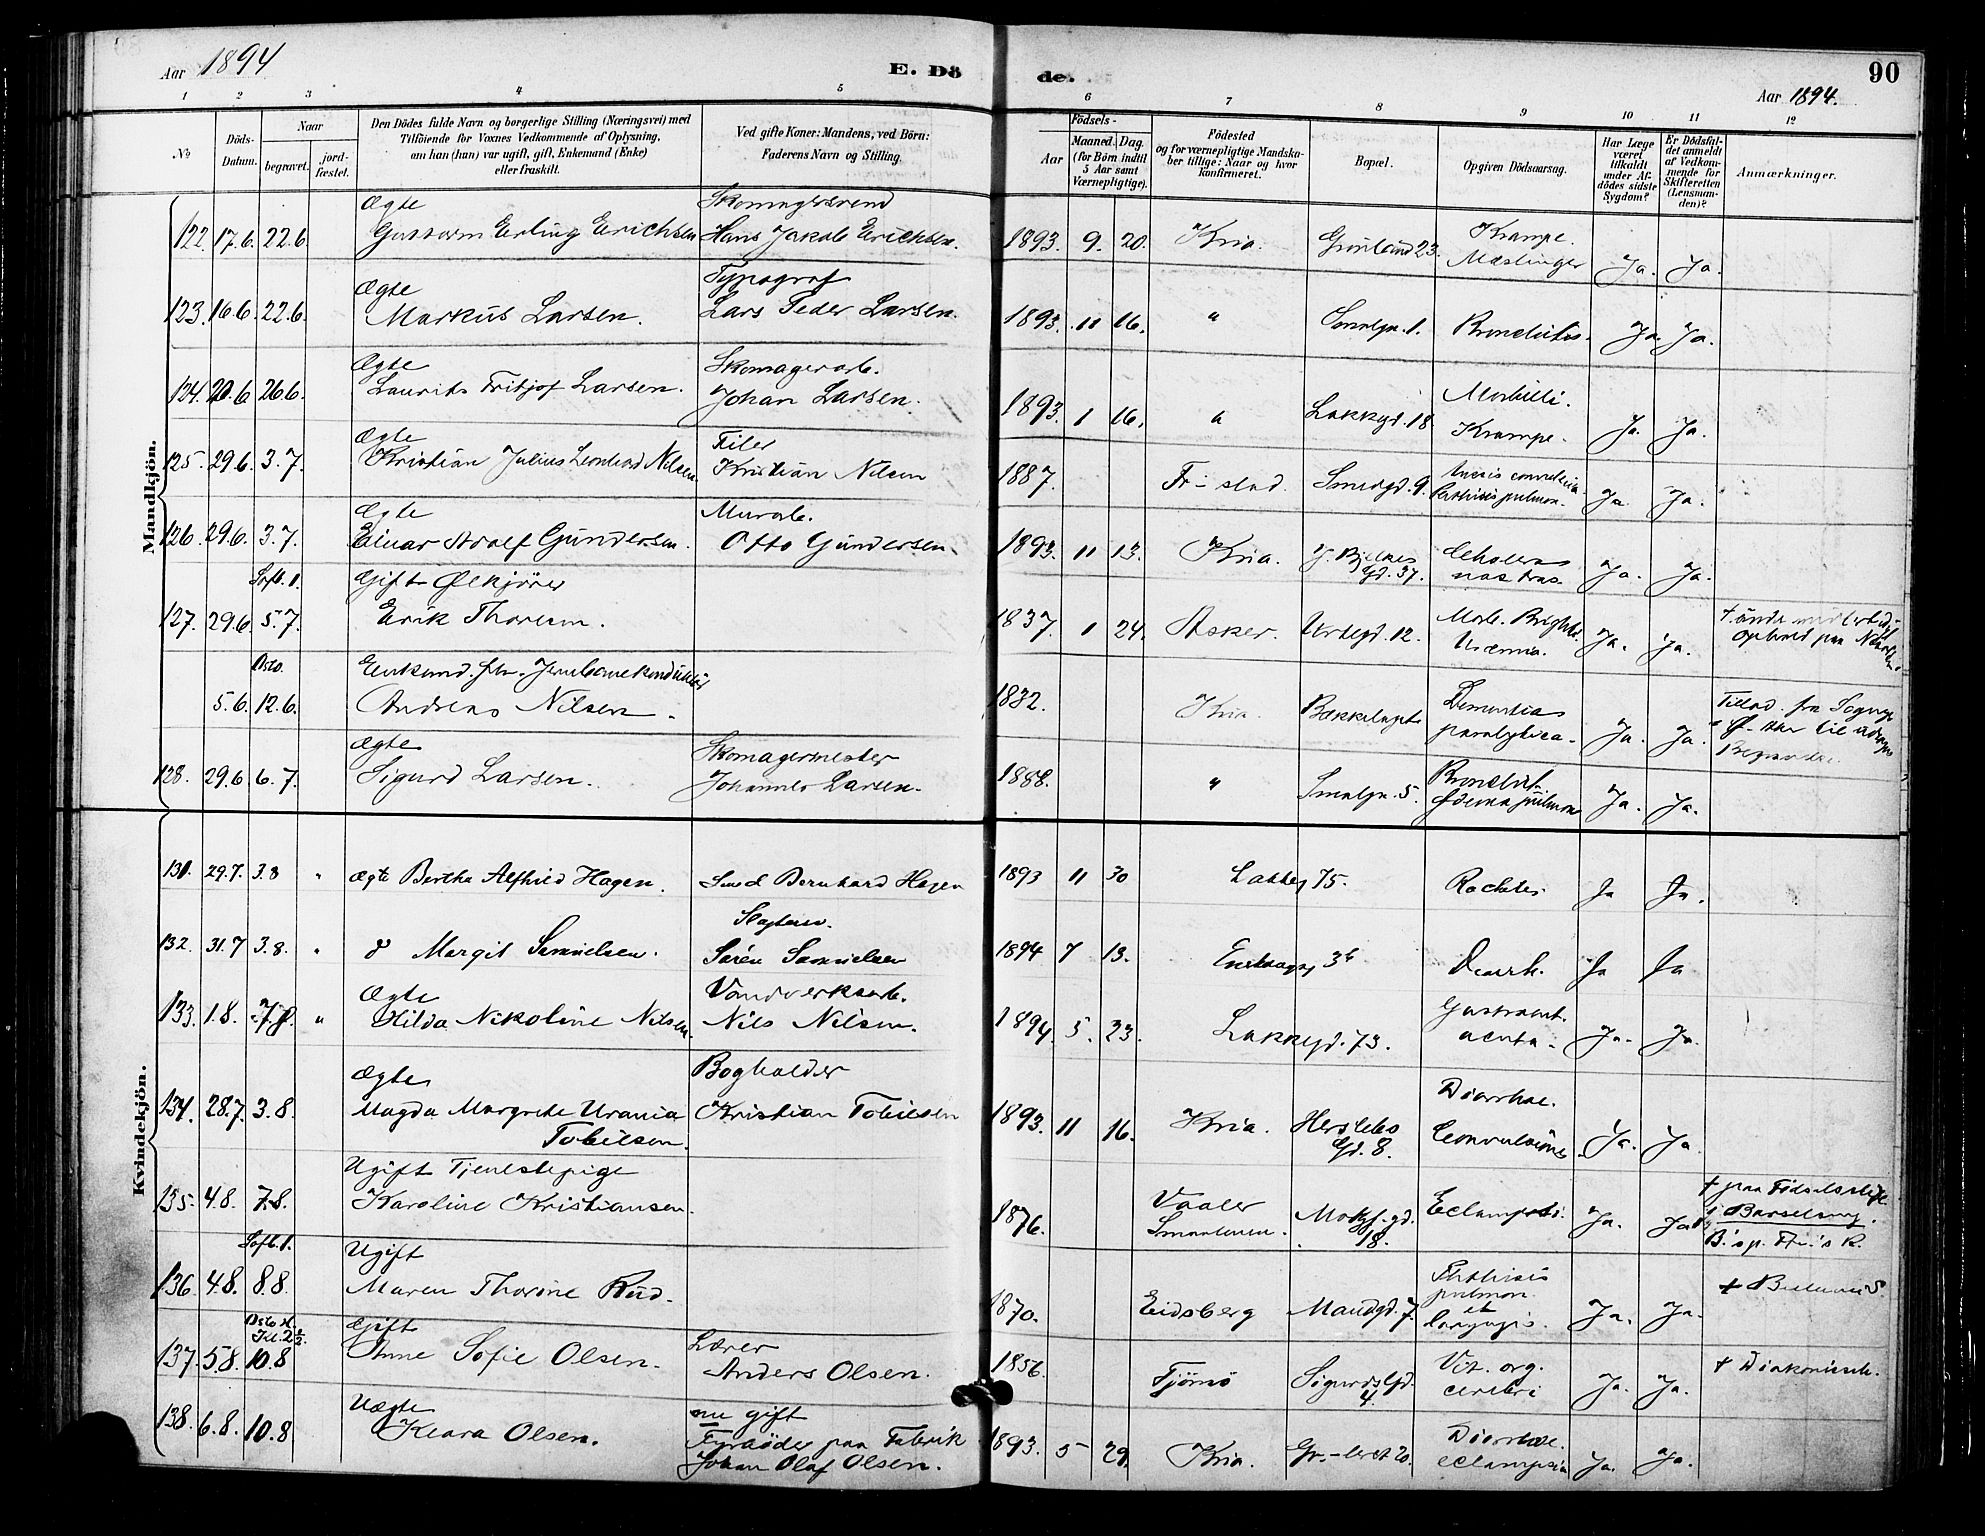 Aar 1894
E. Dö
de.
90
Aar 1894.
1 2 3 4 5 6 7 8 9 10 11 12
No
Döds-
Datum.
Naar
begravet.
jord-
fæstet.
Den Dödes fulde Navn og borgerlige Stilling (Næringsvei) med
Tilföiende for Voxnes Vedkommende af Oplysning,
om han (hun) var ugift, gift, Enkemand (Enke)
eller fraskilt.
Ved gifte Koner: Mandens, ved Börn:
Faderens Navn og Stilling.
Födsels-
Aar
Maaned. Dag.
(for Börn indtil
5 Aar samt
Værnepligtige).
Födested
og for værnepligtige Mandska-
ber tillige: Naar og hvor
konfirmeret.
Bopæl.
Opgiven Dödsaarsag.
Har Læge
været
tilkaldt
under Af-
dödes sidste
Sygdom?
Er Dödsfal-
det anmeldt
af Vedkom-
mende for
Skifteretten
(Lensman-
den)?
Anmærkninger.
Mandkjön.
Ægte Skomagersvend
122. 17.6. 22.6. Guttorm Erling Erichsen Hans Jakob Erichsen. 1893. 9. 20. Kria. Grönland 23. Krampe. Mæslinger Ja. Ja.
Ægte Typograf
123. 16.6. 22.6. Markus Larsen. Lars Peder Larsen. 1893. 11 16. " Smalgn. 1. Bronchitis. Ja. Ja.
Ægte Skomagerarb.
124. 20.6 26.6. Laurits Fritjof Larsen. Johan Larsen. 1893. 1 16. " Lakkegd. 18 Morbilli. Krampe. Ja. Ja.
Ægte Filer
125. 29.6. 3.7. Kristian Julius Leonhard Nilsen Kristian Nilsen 1887. Fr-stad. Smedgd. 9. pulmon. Ja. Ja.
Ægte Murarb.
126. 29.6. 3.7. Einar Adolf Gundersen. Otto Gundersen. 1893. 11 13. Kria. Gd. 37. Cholera nostras. Ja. Ja.
Soft. 1. Gift Ølkjører
127. 29.6 5.7. Erik Thoresen. 1837. 1 24. Asker. Urtegd. 12. Morb. Brighti. Uræmia. Ja. Ja.
Oslo. Enkemd. fhv. Jernbanekonduktör
5.6. 12.6. Andreas Nilsen. 1832. Kria. Bækkelaget Dementia paralytica. Ja. Ja.
Ægte Skomagermester
128. 29.6 6.7. Sigurd Larsen. Johannes Larsen. 1888. " Smalgn. 5. Bronchit. Ødema pulmon Ja. Ja.
Kvindekjön.
131. 29.7. 3.8 " ægte Bertha Alfhild Hagen. Smed Bernhard Hagen 1893 11 30 Lakkeg 75. Rachitis Ja Ja.
132. 31.7 3.8. " Margit Samuelsen. Søren Samuelsen 1894 7 13. Diarrh. Ja Ja
Ægte Vandverksarb.
133. 1.8. 7.8. " Hilda Nikoline Nilsen. Nils Nilsen. 1894. 5. 23. Lakkegd. 73. acuta. Ja. Ja.
Ægte Bogholder
134. 28.7. 3.8. Magda Margrete Urania Tobiesen. Kristian Tobiesen 1893. 11 16. Kria. Herslebs Gd. 8. Diarrhoe. Convulsioner Ja. Ja.
Ugift Tjenestepige
135. 4.8. 7.8. Karoline Kristiansen. 1876. Vaaler Smaalenene. 18. Eclampsi. Ja. Ja. + paa Födselsstift. i Barselseng.
Soft. 1. Ugift
136. 4.8. 8.8. Maren Thorine Rud. 1870. Eidsberg Mandgd. 7. Phthisis pulmon. et laryngis. Ja. Ja.
Oslo K. Kl. 2½ Gift Lærer
137. 5.8. 10.8 Anne Sofie Olsen. Anders Olsen. 1856. Tjömö Sigurdsgd. 4. Vit. org. cerebri Ja. Ja. + Diakonissh.
Uægte nu gift
138. 6.8. 10.8 Klara Olsen. Fyrböder paa Fabrik Johan Olaf Olsen. 1893. 5 29. Kria. Gr-leret 20. Diarrhoe. eclampsia Ja. Ja.